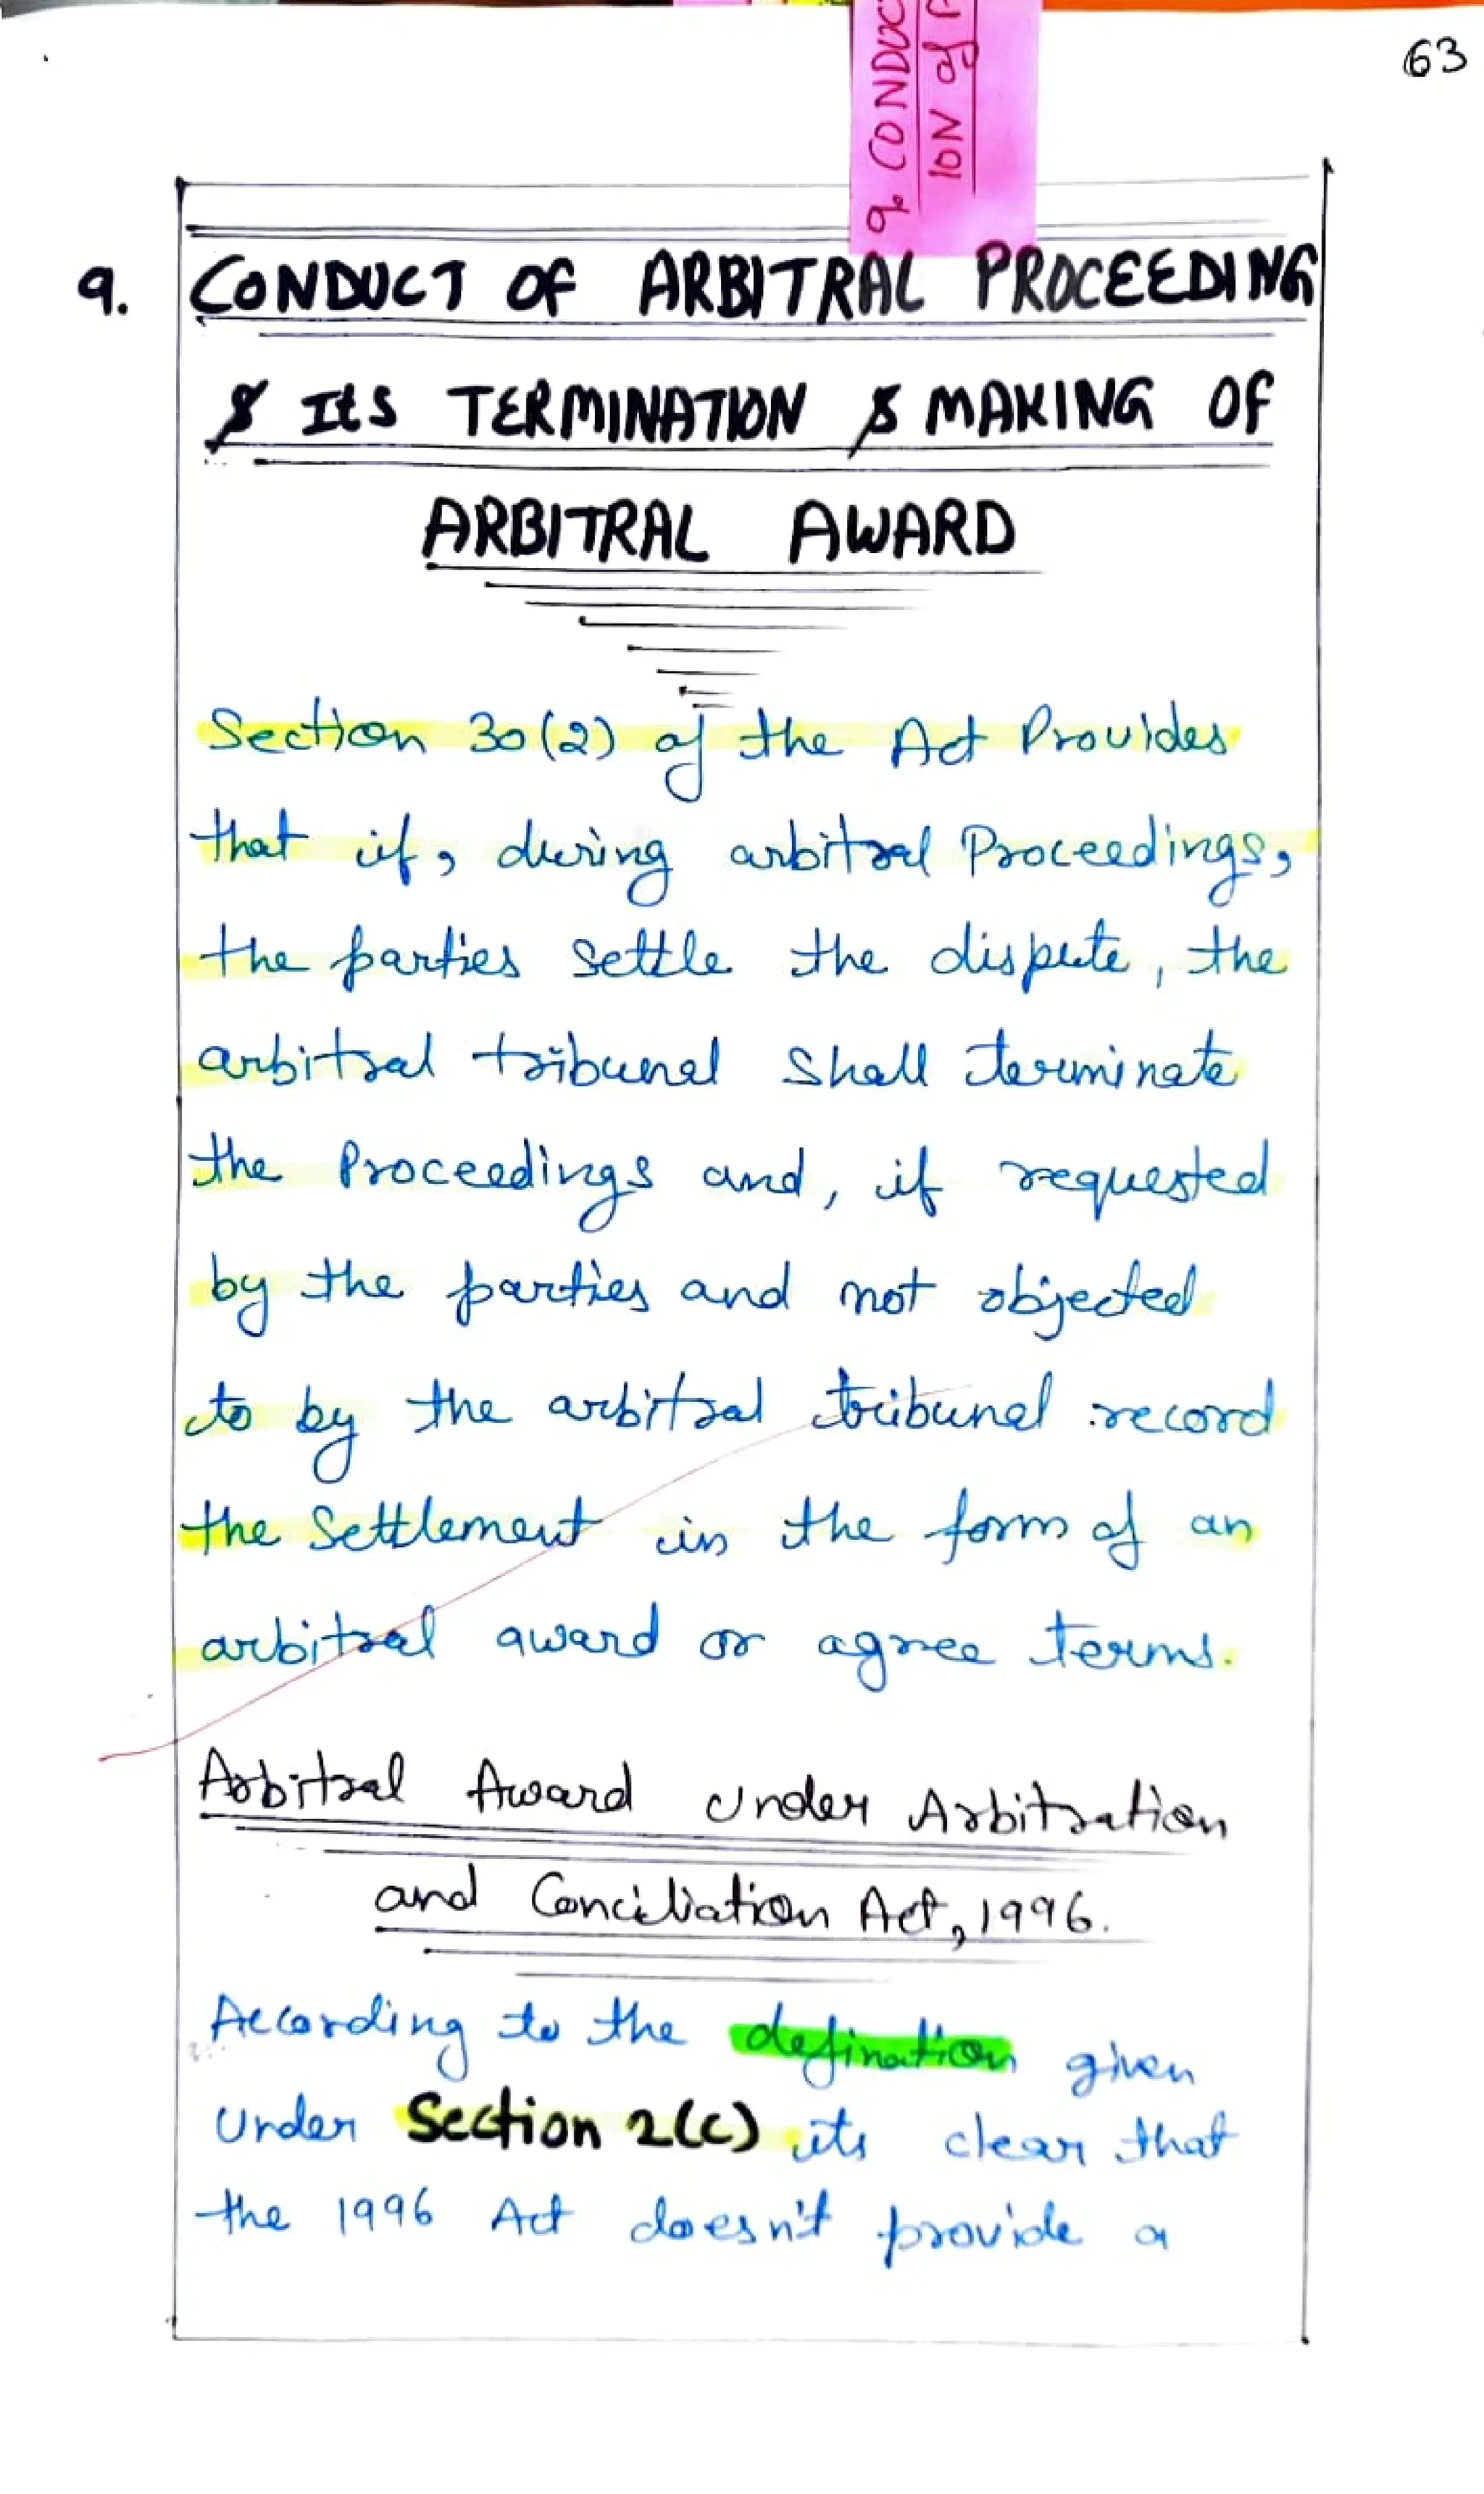 63
9. CONDUC
ION of
9. CONDUCT OF ARBITRAL PROCEEDING
& Its TERMINATION & MAKING OF
ARBITRAL AWARD
Section 30(2) of the Act Provides
that if, during arbitral Proceedings,
the parties settle the dispute, the
arbitral tribunal shall terminate
the Proceedings and, if requested
by the parties and not objected
to by the arbitral tribunal record
the Settlement in the form of an
arbitral award or agree terms.
Arbitral Award Under Arbitration
and Conciliation Act, 1996.
According to the defination given
Under Section 2(c) its clear that
the 1996 Act doesn't provide a